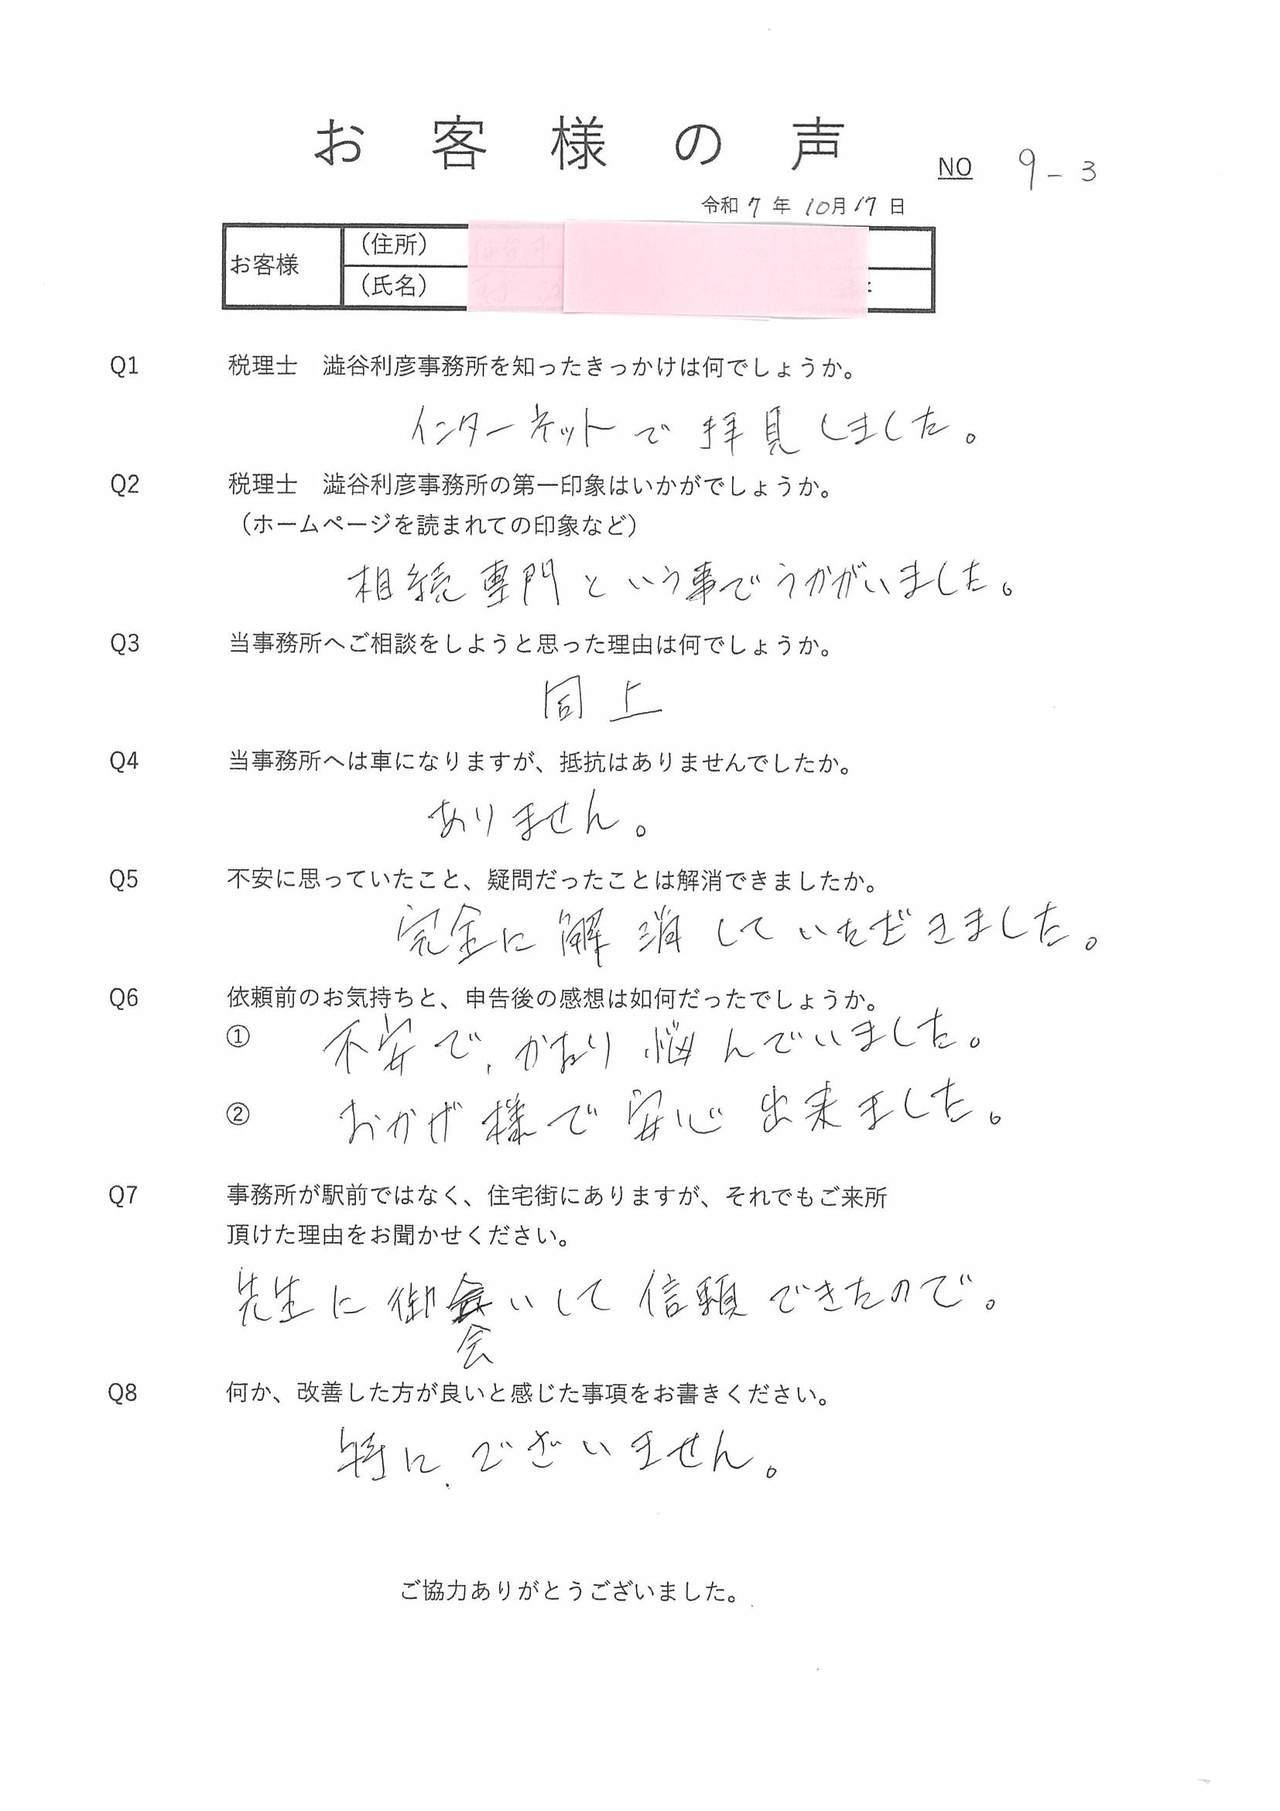 お客様の声
NO 9-3
令和7年10月17日
お客様
（住所）
（氏名）
Q1 税理士　澁谷利彦事務所を知ったきっかけは何でしょうか。
インターネットで拝見しました。
Q2 税理士　澁谷利彦事務所の第一印象はいかがでしょうか。
（ホームページを読まれての印象など）
相続専門という事でうかがいました。
Q3 当事務所へご相談をしようと思った理由は何でしょうか。
同上
Q4 当事務所へは車になりますが、抵抗はありませんでしたか。
ありません。
Q5 不安に思っていたこと、疑問だったことは解消できましたか。
完全に解消していただきました。
Q6 依頼前のお気持ちと、申告後の感想は如何だったでしょうか。
① 不安で、かなり悩んでいました。
② おかげ様で安心出来ました。
Q7 事務所が駅前ではなく、住宅街にありますが、それでもご来所
頂けた理由をお聞かせください。
先生に御会いして信頼できたので。
Q8 何か、改善した方が良いと感じた事項をお書きください。
特に、ございません。
ご協力ありがとうございました。